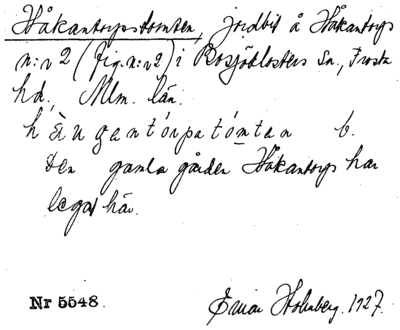 Håkantorpstomten, jordbit å Håkantorps
n:r 2 (fig. n:r 2) i Bosjöklosters Sn., Frosta
hd., Mlm. län.
b.
Den gamla gården Håkantorps har
legat här.
Nr 5548. Einar Holmberg. 1927.